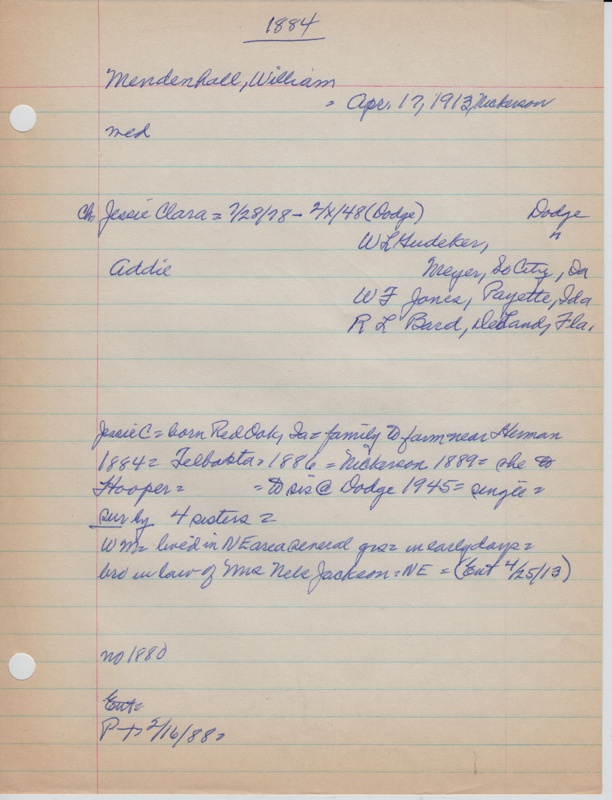 1884
Mendenhall, William
= Apr. 17, 1913, Nickerson
med
Ch, Jessie Clara = 7/28/78 - 2/X/48 (Dodge) Dodge
W L Hudeker, "
Addie Meyer, So City, Da
W F Jones, Payette, Ida
R L Bard, DeLand, Fla.
Jessie C = born Red Oak, Ia = family to farm near Herman
1884 = Tekbasta = 1886 = Nickerson 1889 = she to
Hooper = = to sis @ Dodge 1945 = single =
sur by 4 sisters =
Wm = lived in NE area several yrs = in early days =
bro in law of Mrs Nels Jackson = NE = (Ent 4/25/13)
no 1880
Ent =
P → 2/16/88 =